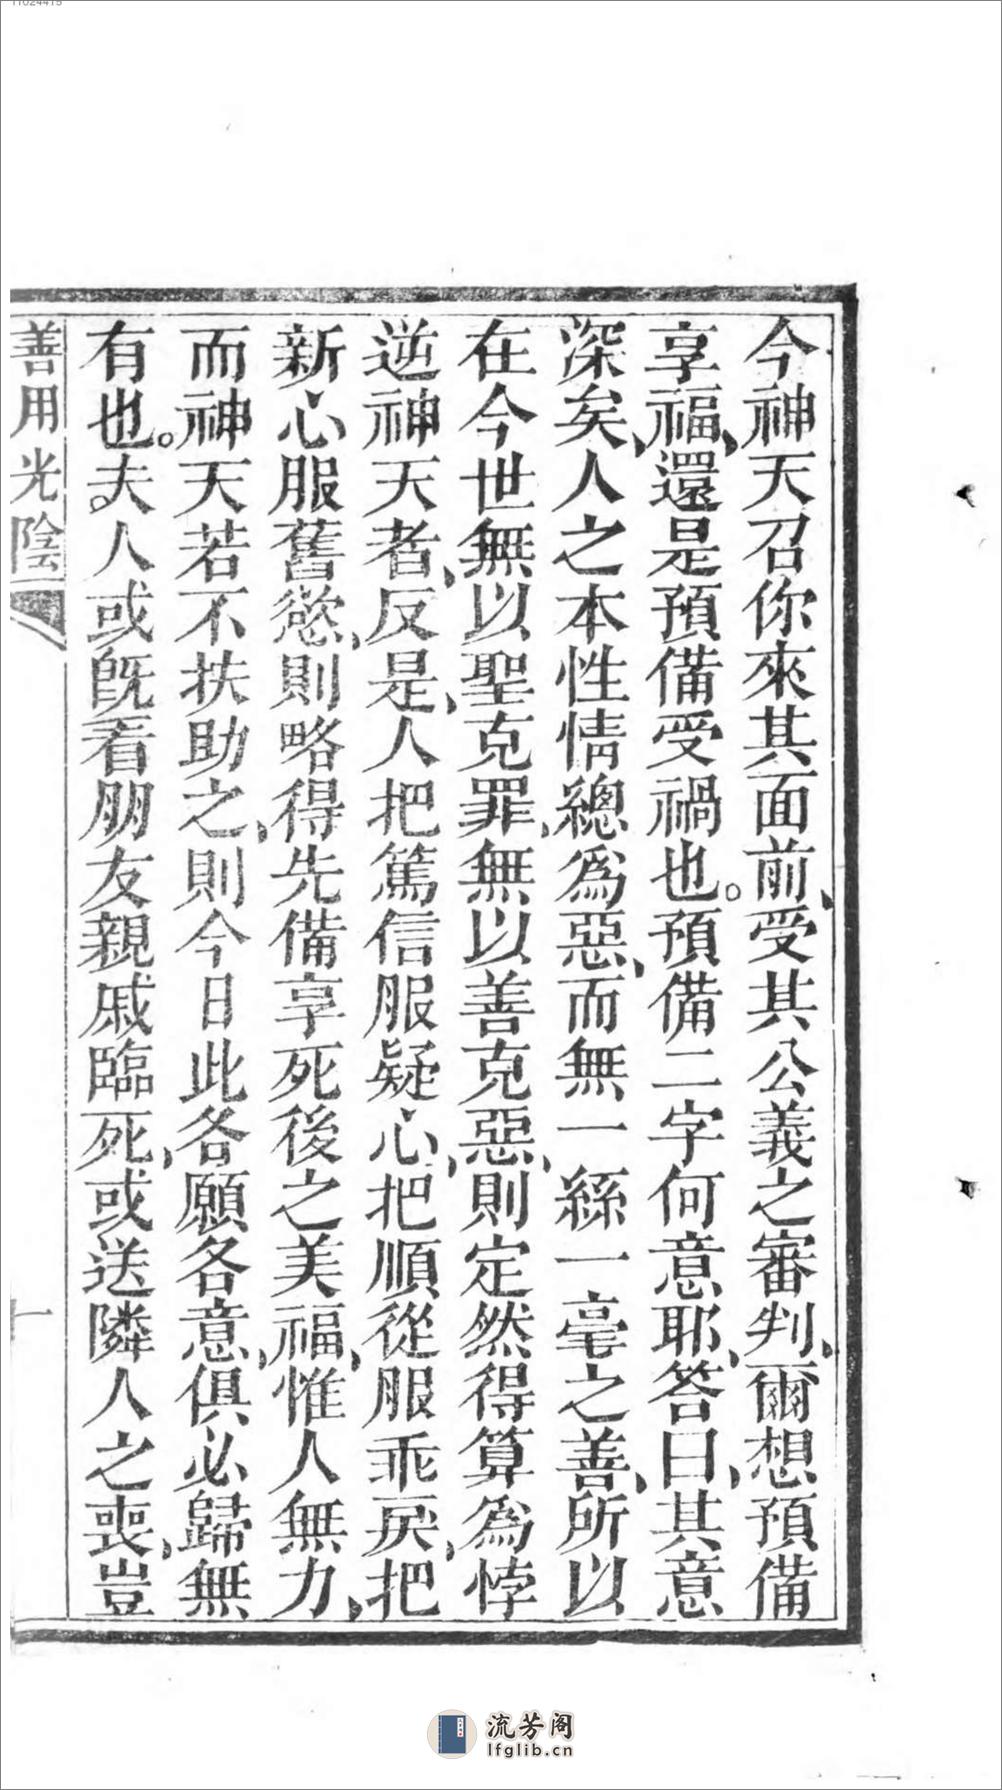 今神天召你來其面前、受其公義之審判、爾想預備
享福、還是預備受禍也。預備二字何意耶、答曰、其意
深矣、人之本性情總為惡、而無一絲一毫之善、所以
在今世無以聖克罪、無以善克惡、則定然得算為悖
逆神天者、反是、人把篤信服疑心、把順從服乖戾、把
新心服舊慾、則略得先備享死後之美福、惟人無力、
而神天若不扶助之、則今日此各願各意、俱必歸無
有也。夫人或旣看朋友親戚臨死、或送隣人之喪、豈
善用光陰
一
流芳阁
lfglib.cn